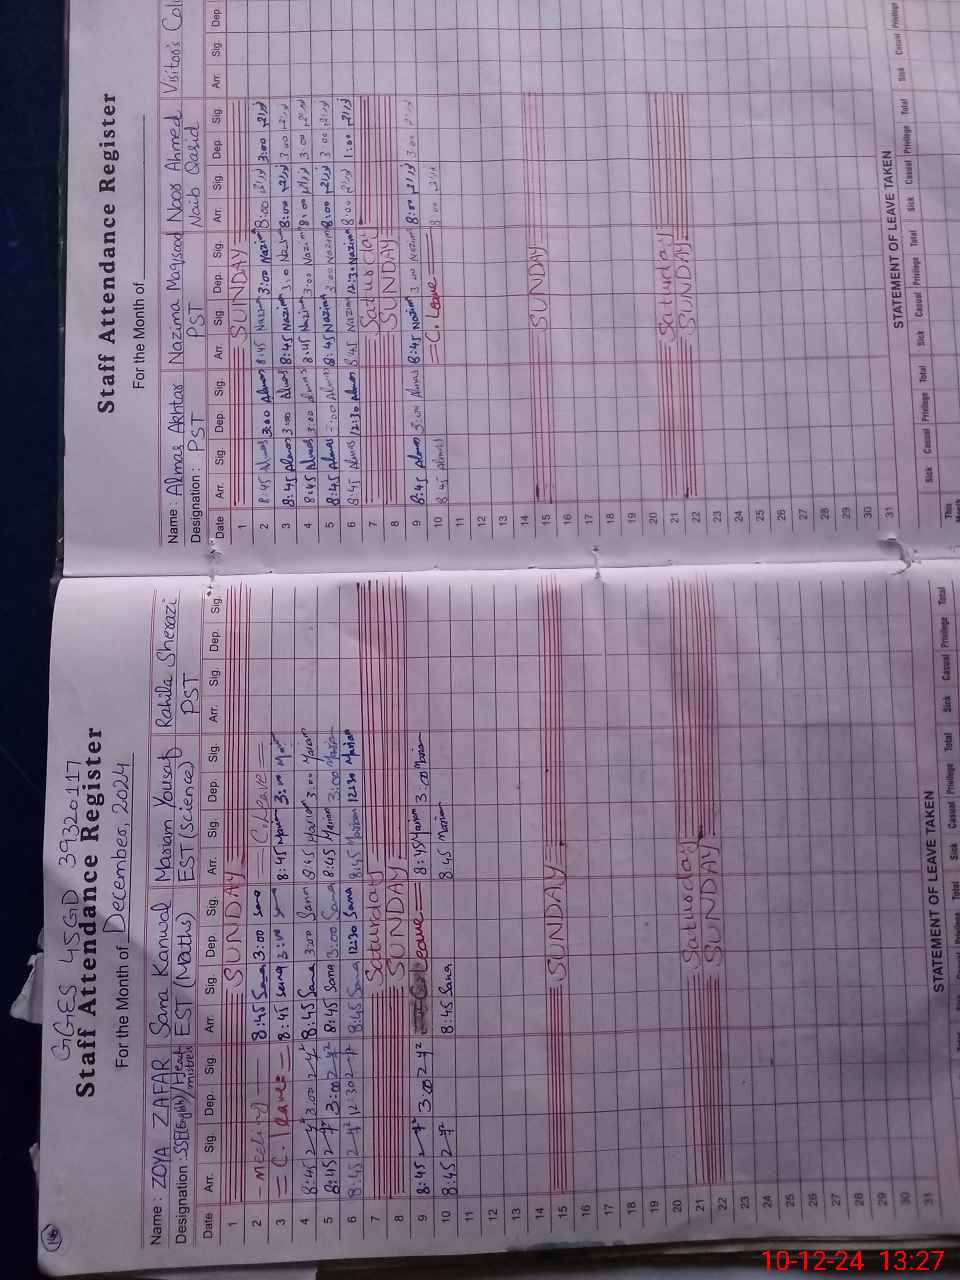 GGES 45GD 39320117
Staff Attendance Register
For the Month of December, 2024
Name : ZOYA ZAFAR Sana Kanwal Mariam Yousaf Rahila Sherazi
Designation : SSE(English)/Head mistress EST (Maths) EST (Science) PST
Date Arr. Sig. Dep. Sig. Arr. Sig. Dep. Sig. Arr. Sig. Dep. Sig. Arr. Sig. Dep. Sig.
1 SUNDAY
2 - Meeting - 8:45 Sana 3:00 Sana C.Leave =
3 = C. leave = 8:45 Sana 3:00 8:45 Mariam 3:00
4 8:45 3:00 8:45 Sana 3:00 Sana 8:45 Mariam 3:00 Mariam
5 8:45 3:00 8:45 Sana 3:00 Sana 8:45 Mariam 3:00 Mariam
6 8:45 12:30 8:45 Sana 12:30 Sana 8:45 Mariam 12:30 Mariam
7 Saturday
8 SUNDAY
9 8:45 3:00 Leave = 8:45 Mariam 3:00 Mariam
10 8:45 8:45 Sana 8:45 Mariam
11
12
13
14
15 SUNDAY
16
17
18
19
20
21 Saturday
22 SUNDAY
23
24
25
26
27
28
29
30
31
STATEMENT OF LEAVE TAKEN
Sick Casual Privilege Total Sick Casual Privilege Total
Staff Attendance Register
For the Month of
Name : Almas Akhtar Nazima Maqsood Noor Ahmed Visitor's
Designation : PST PST Naib Qasid
Date Arr. Sig. Dep Sig. Arr. Sig. Dep. Sig. Arr. Sig. Dep. Sig. Arr. Sig. Dep.
1 SUNDAY
2 8:45 Almas 3:00 Almas 8:45 Nazima 3:00 Nazima 8:00 3:00
3 8:45 Almas 3:00 Almas 8:45 Nazima 3:00 8:00 3:00
4 8:45 Almas 3:00 Almas 8:45 Nazima 3:00 Nazima 8:00 3:00
5 8:45 Almas 3:00 Almas 8:45 Nazima 3:00 Nazima 8:00 3:00
6 8:45 Almas 12:30 Almas 8:45 Nazima 12:30 Nazima 8:00 1:00
7 Saturday
8 SUNDAY
9 8:45 Almas 3:00 Almas 8:45 Nazima 3:00 Nazima 8:00 3:00
10 8:45 Almas = C. Leave = 8:00
11
12
13
14
15 SUNDAY
16
17
18
19
20
21 Saturday
22 SUNDAY
23
24
25
26
27
28
29
30
31
STATEMENT OF LEAVE TAKEN
Sick Casual Privilege Total Sick Casual Privilege Total Sick Casual Privilege Total Sick Casual Privilege
This
10-12-24 13:27